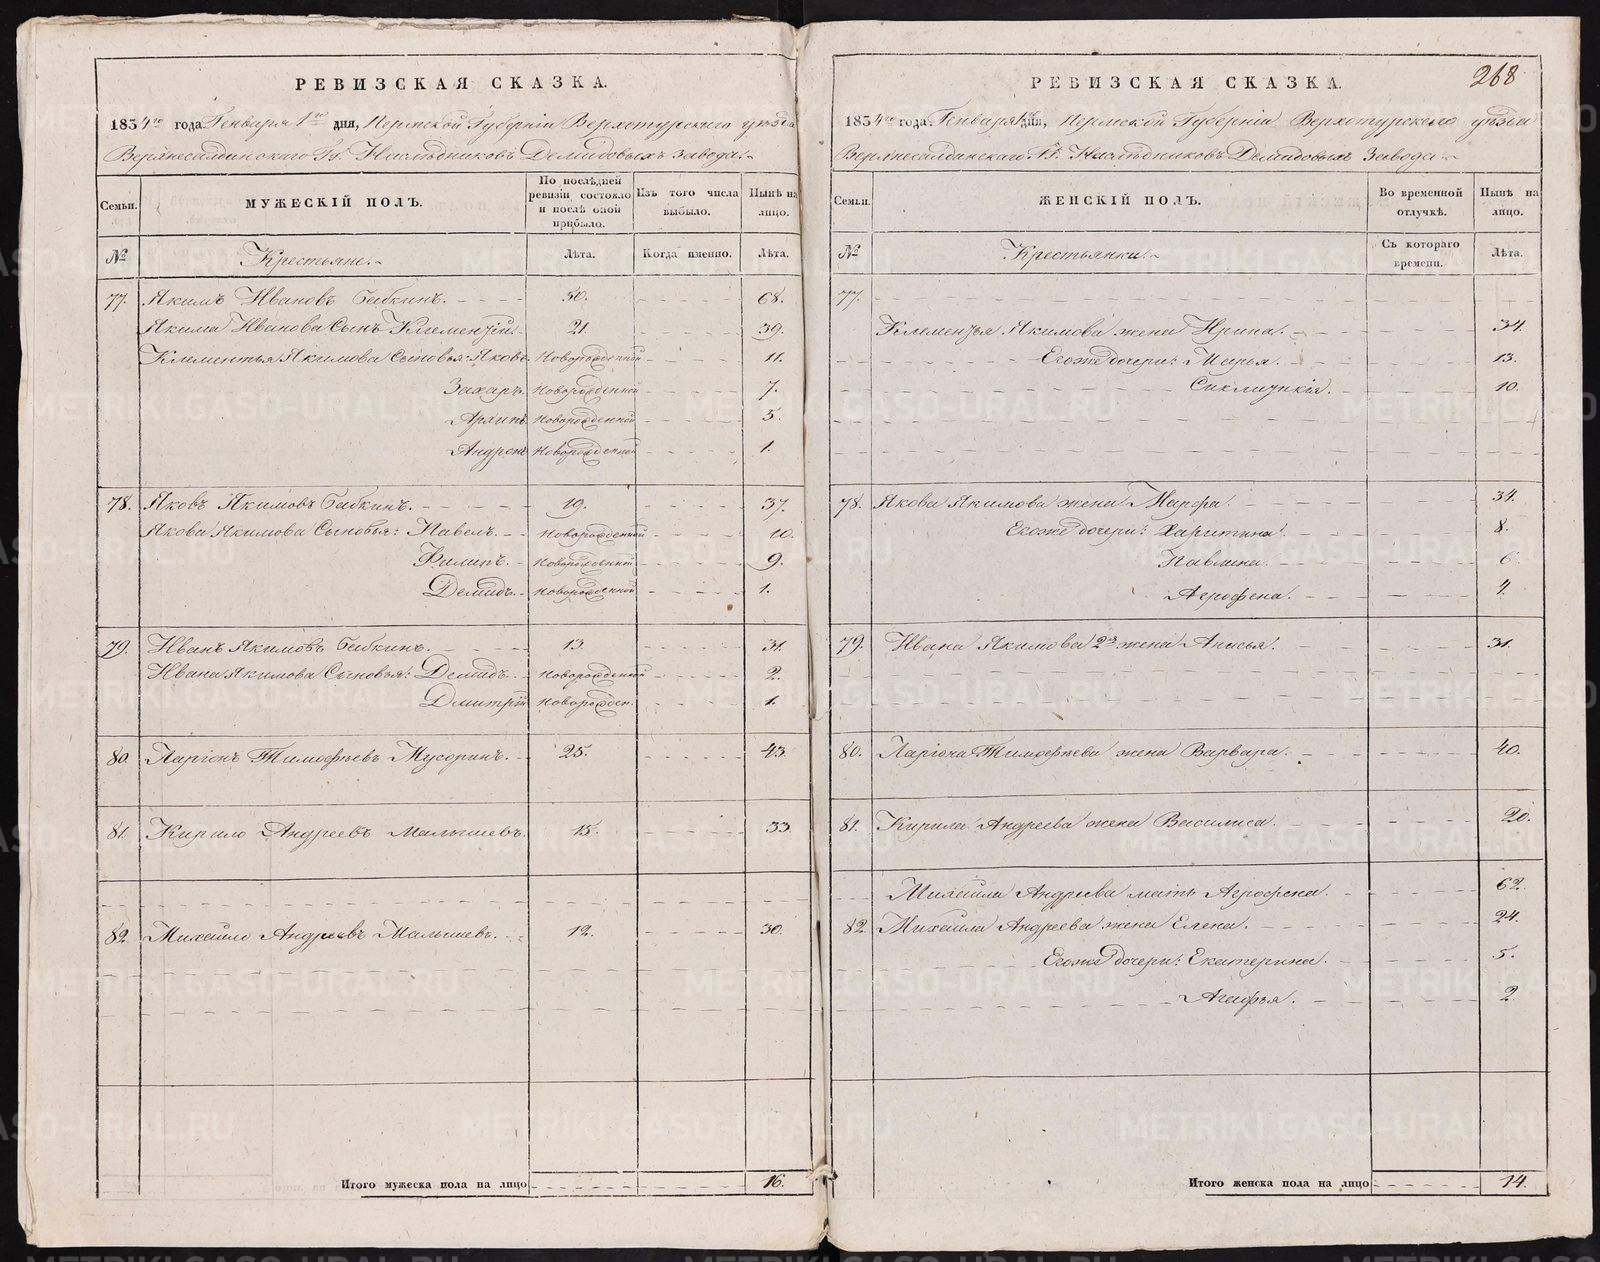 РЕВИЗСКАЯ СКАЗКА.
1834го года Генваря 1го дня, Пермской Губерніи Верхотурскаго уѣзда
Верхнесалдинскаго Гг. Наслѣдниковъ Демидовыхъ Завода.
Семьи. МУЖЕСКІЙ ПОЛЪ. По послѣдней ревизіи состояло и послѣ оной прибыло. Изъ того числа выбыло. Нынѣ на лицо.
№ Крестьяне. Лѣта. Когда именно. Лѣта.
77. Якимъ Ивановъ Бабкинъ. 50. 68.
Якима Иванова Сынъ Клементій. 21. 39.
Клементья Якимова Сыновья: Яковъ Новорожденной 11.
Захаръ. Новорожденной 7.
Архипъ Новорожденной 5.
Андрей Новорожденной 1.
78. Яковъ Якимовъ Бабкинъ. 19. 37.
Якова Якимова Сыновья: Павелъ. Новорожденной 10.
Филипъ. Новорожденной 9.
Демидъ. Новорожденной 1.
79. Иванъ Якимовъ Бабкинъ. 13. 31.
Ивана Якимова Сыновья: Демидъ. Новорожденной 2.
Дмитрій Новорожден. 1.
80. Ларіонъ Тимофѣевъ Мусоринъ. 25. 43.
81. Кирило Андреевъ Малышевъ. 15. 33.
82. Михайло Андреевъ Малышевъ. 12. 30.
Итого мужеска пола на лицо 16.
268
РЕВИЗСКАЯ СКАЗКА.
1834го года Генваря 1го дня, Пермской Губерніи Верхотурскаго уѣзда
Верхнесалдинскаго Гг. Наслѣдниковъ Демидовыхъ Завода.
Семьи. ЖЕНСКІЙ ПОЛЪ. Во временной отлучкѣ. Нынѣ на лицо.
№ Крестьянки. Съ котораго времени. Лѣта.
77.
Клементья Якимова жена Ирина. 34.
Егоже дочери: Марья. 13.
Сиклитикія. 10.
78. Якова Якимова жена Марфа. 34.
Егоже дочери: Харитина. 8.
Павлина. 6.
Агрофена. 4.
79. Ивана Якимова 2я жена Анисья. 31.
80. Ларіона Тимофѣева жена Варвара. 40.
81. Кирила Андреева жена Василиса. 20.
Михайла Андреева мать Агрофена. 62.
82 Михайла Андреева жена Елена. 24.
Егоже дочери: Екатерина. 5.
Агафья. 2
Итого женска пола на лицо 14.
METRIKI.GASO-URAL.RU